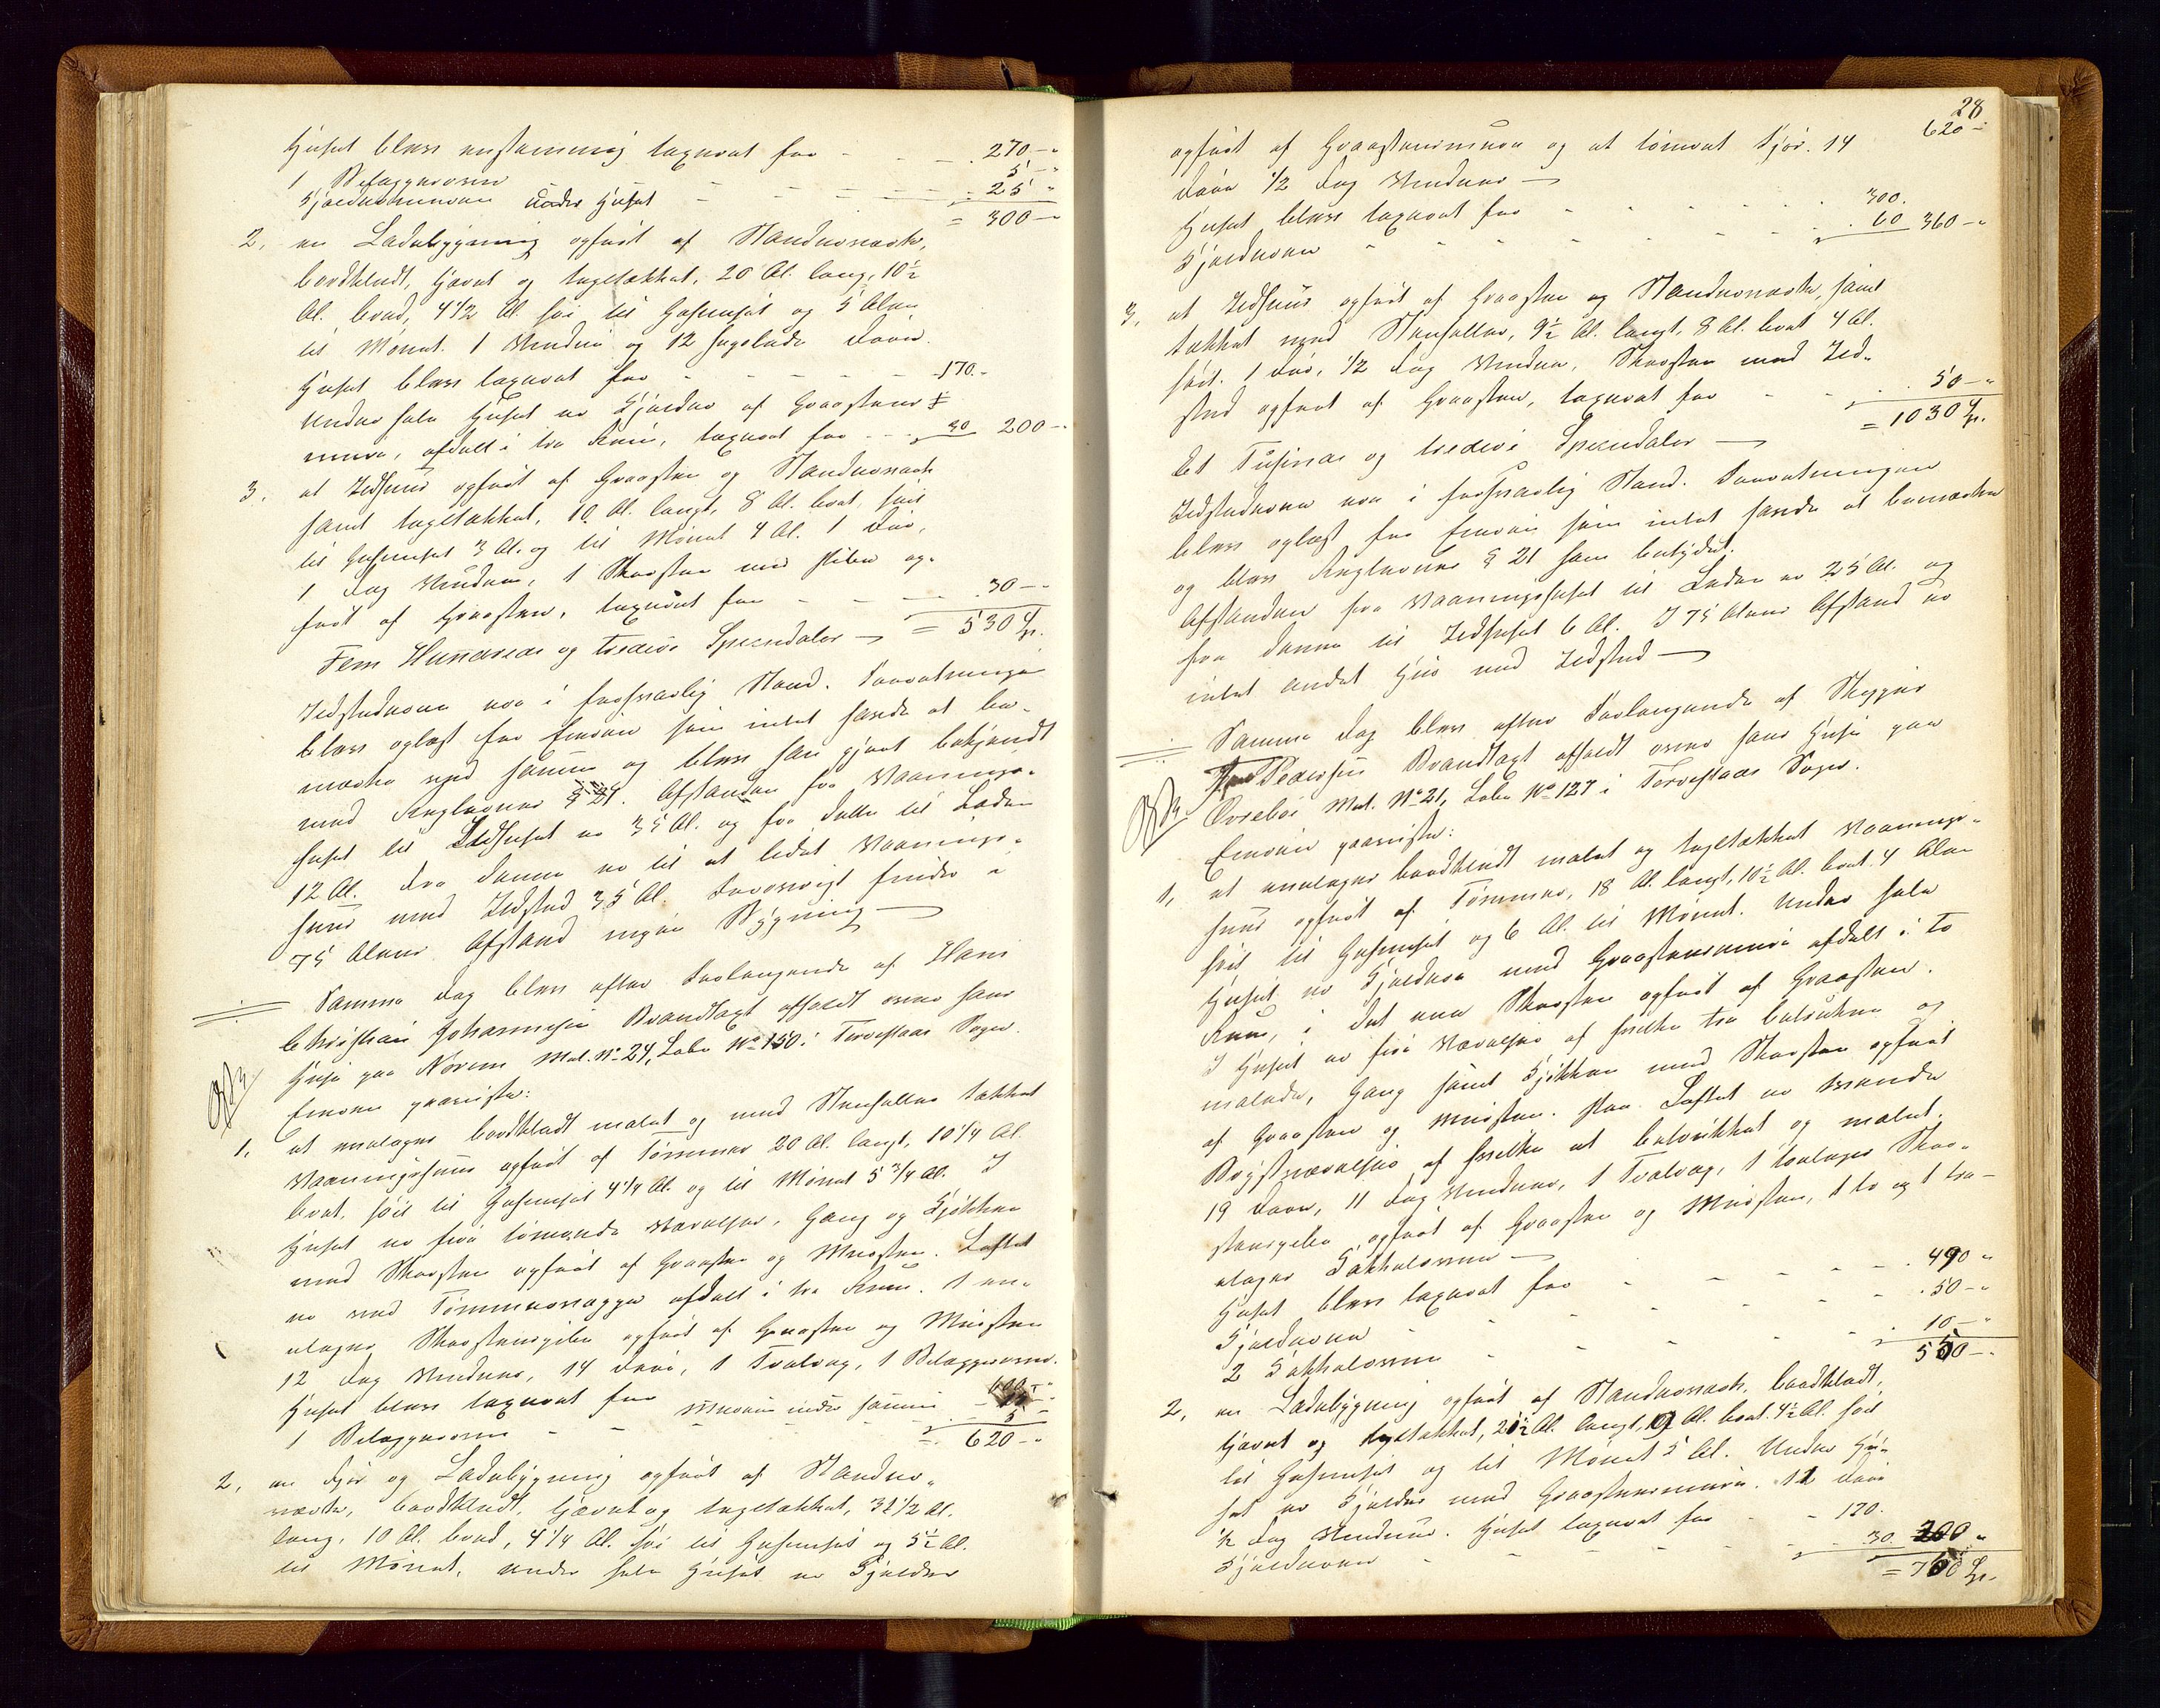 Huset blev enstemmig taxeret for - - - 270 - "
1 Bilæggerovn - - - 5 - "
Kjelderen under Huset - - - 25 "
= 300 - "
2, en Ladebygning opført af Standerværk,
bordklædt, tjæret og tagltækket, 20 Al. lang, 10½
Al. bred, 4 1/2 Al. høi til Gesimset og 5 Alen
til Mønet. 1 Vindue og 12 Døre.
Huset blev taxeret for - - - 170 -
Under hele Huset er Kjelder af Graasteens
mure, afdelt i tre Rum, taxeret for - - 30 200 - "
3, et Ildhuus opført af Graasten og Standerværk
samt tagltækket, 10 Al. langt, 8 Al. bret, høit
til Gesimset 3 Al. og til Mønet 4 Al. 1 Dør,
1 Fag Vinduer, 1 Skorsten med Pibe op-
ført af Graasten, taxeret for - - - 30 - "
Fem Hundrede og tredive Speciedaler — = 530 Sp.
Ildstederne ere i forsvarlig Stand. Forretningen
blev oplæst for Eieren som intet havde at be-
mærke ved samme og blev han gjort bekjendt
med Reglernes § 21. Afstanden fra Vaanings-
huset til Ildhuset er 35 Al. og fra dette til Laden
12 Al. Fra denne er til et lidet Vaanings-
huus med Ildsted 35 Al. Forøvrigt findes i
75 Alens Afstand ingen Bygning —
Samme Dag blev efter Forlangende af Hans
Christian Johannesen Brandtaxt afholdt over hans
Huse paa Nørem Mat. No 24, Løbe No 150 i Torvestads Sogn.
Eieren paaviste:
1, et enetages bordklædt malet og med Stenheller tækket
Vaaningshuus opført af Tømmer 20 Al. langt, 10 1/4 Al.
bret, høit til Gesimset 4 1/4 Al. og til Mønet 5 3/4 Al. I
Huset er fire tømrede Værelser, Gang og Kjøkken
med Skorsten opført af Graasten og Mursten. Loftet
er ved Tømmervægge afdelt i tre Rum. 1 en-
etages Skorstenspibe opført af Graasten og Mursten
12 Fag Vinduer, 14 Døre, 1 Tvalvag, 1 Bilæggerovn.
Huset blev taxeret for Muren under samme
1 Bilæggerovn - - - 5 -
= 620 - "
2, en Fjøs og Ladebygning opført af Stander-
værk, bordklædt, tjæret og tagltækket, 31 1/2 Al.
lang, 10 Al. bred, 4 1/4 Al. høi til Gesimset og 5½ Al.
til Mønet, under hele Huset er Kjelder
28
620 -
opført af Graastensmure og et tømret Fjøs. 14
Døre 1/2 Fag Vinduer —
Huset blev taxeret for - - - 300.
Kjelderen - - - 60 360 - "
3, et Ildhuus opført af Graasten og Standerværk, samt
tækket med Stenheller, 9½ Al. langt, 8 Al. bret 4 Al.
høit. 1 Dør, 1/2 Fag Vinduer, Skorsten med Ild-
sted opført af Graasten, taxeret for - - - 50 - "
= 1030 Sp.
Et Tusinde og tredive Speciedaler —
Ildstederne ere i forsvarlig Stand. Forretningen
blev oplæst for Eieren som intet havde at bemærke
og blev Reglernes § 21 ham betydet.
Afstanden fra Vaaningshuset til Laden er 25 Al. og
fra denne til Ildhuset 6 Al. I 75 Alens Afstand er
intet andet Huus med Ildsted —
Samme Dag blev efter Forlangende af Skipper
Pedersen Brandtaxt afholdt over hans Huse paa
Øvrebø Mat. No 21, Løbe No 127 i Torvestads Sogn.
Eieren paaviste:
1, et enetages bordklædt malet og tagltækket Vaanings-
huus opført af Tømmer, 18 Al. langt, 10½ Al. bret 4 Alen
høit til Gesimset og 6 Al. til Mønet. Under hele
Huset er Kjeldere med Graastensmure afdelt i to
Rum, i det ene Skorsten opført af Graasten.
I Huset er fire Værelser af hvilke tre betrukne og
malede, Gang samt Kjøkken med Skorsten opført
af Graasten og Mursten. Paa Loftet er trende
Brystværelser af hvilke et betrukket og malet.
19 Døre, 11 Fag Vinduer, 1 Tvalvag, 1 toetages Skor-
stenspibe opført af Graasten og Mursten, 1 to og 1 tre-
etages Kakkelovn —
Huset blev taxeret for - - - 490 "
Kjelderne - - - 50 - "
2 Kakkelovne - - - 10 - "
550 - "
2, en Ladebygning opført af Standerværk, bordklædt,
tjæret og tagltækket, 21½ Al. langt, 10 Al. bret. 4½ Al. høit
til Gesimset og til Mønet 5 Al. Under Hu-
set er Kjelder med Graastensmure. 12 Døre
½ Fag Vinduer. Huset taxeret for - - 170.
Kjelderen - - - 30. 200 "
= 750 Sp.